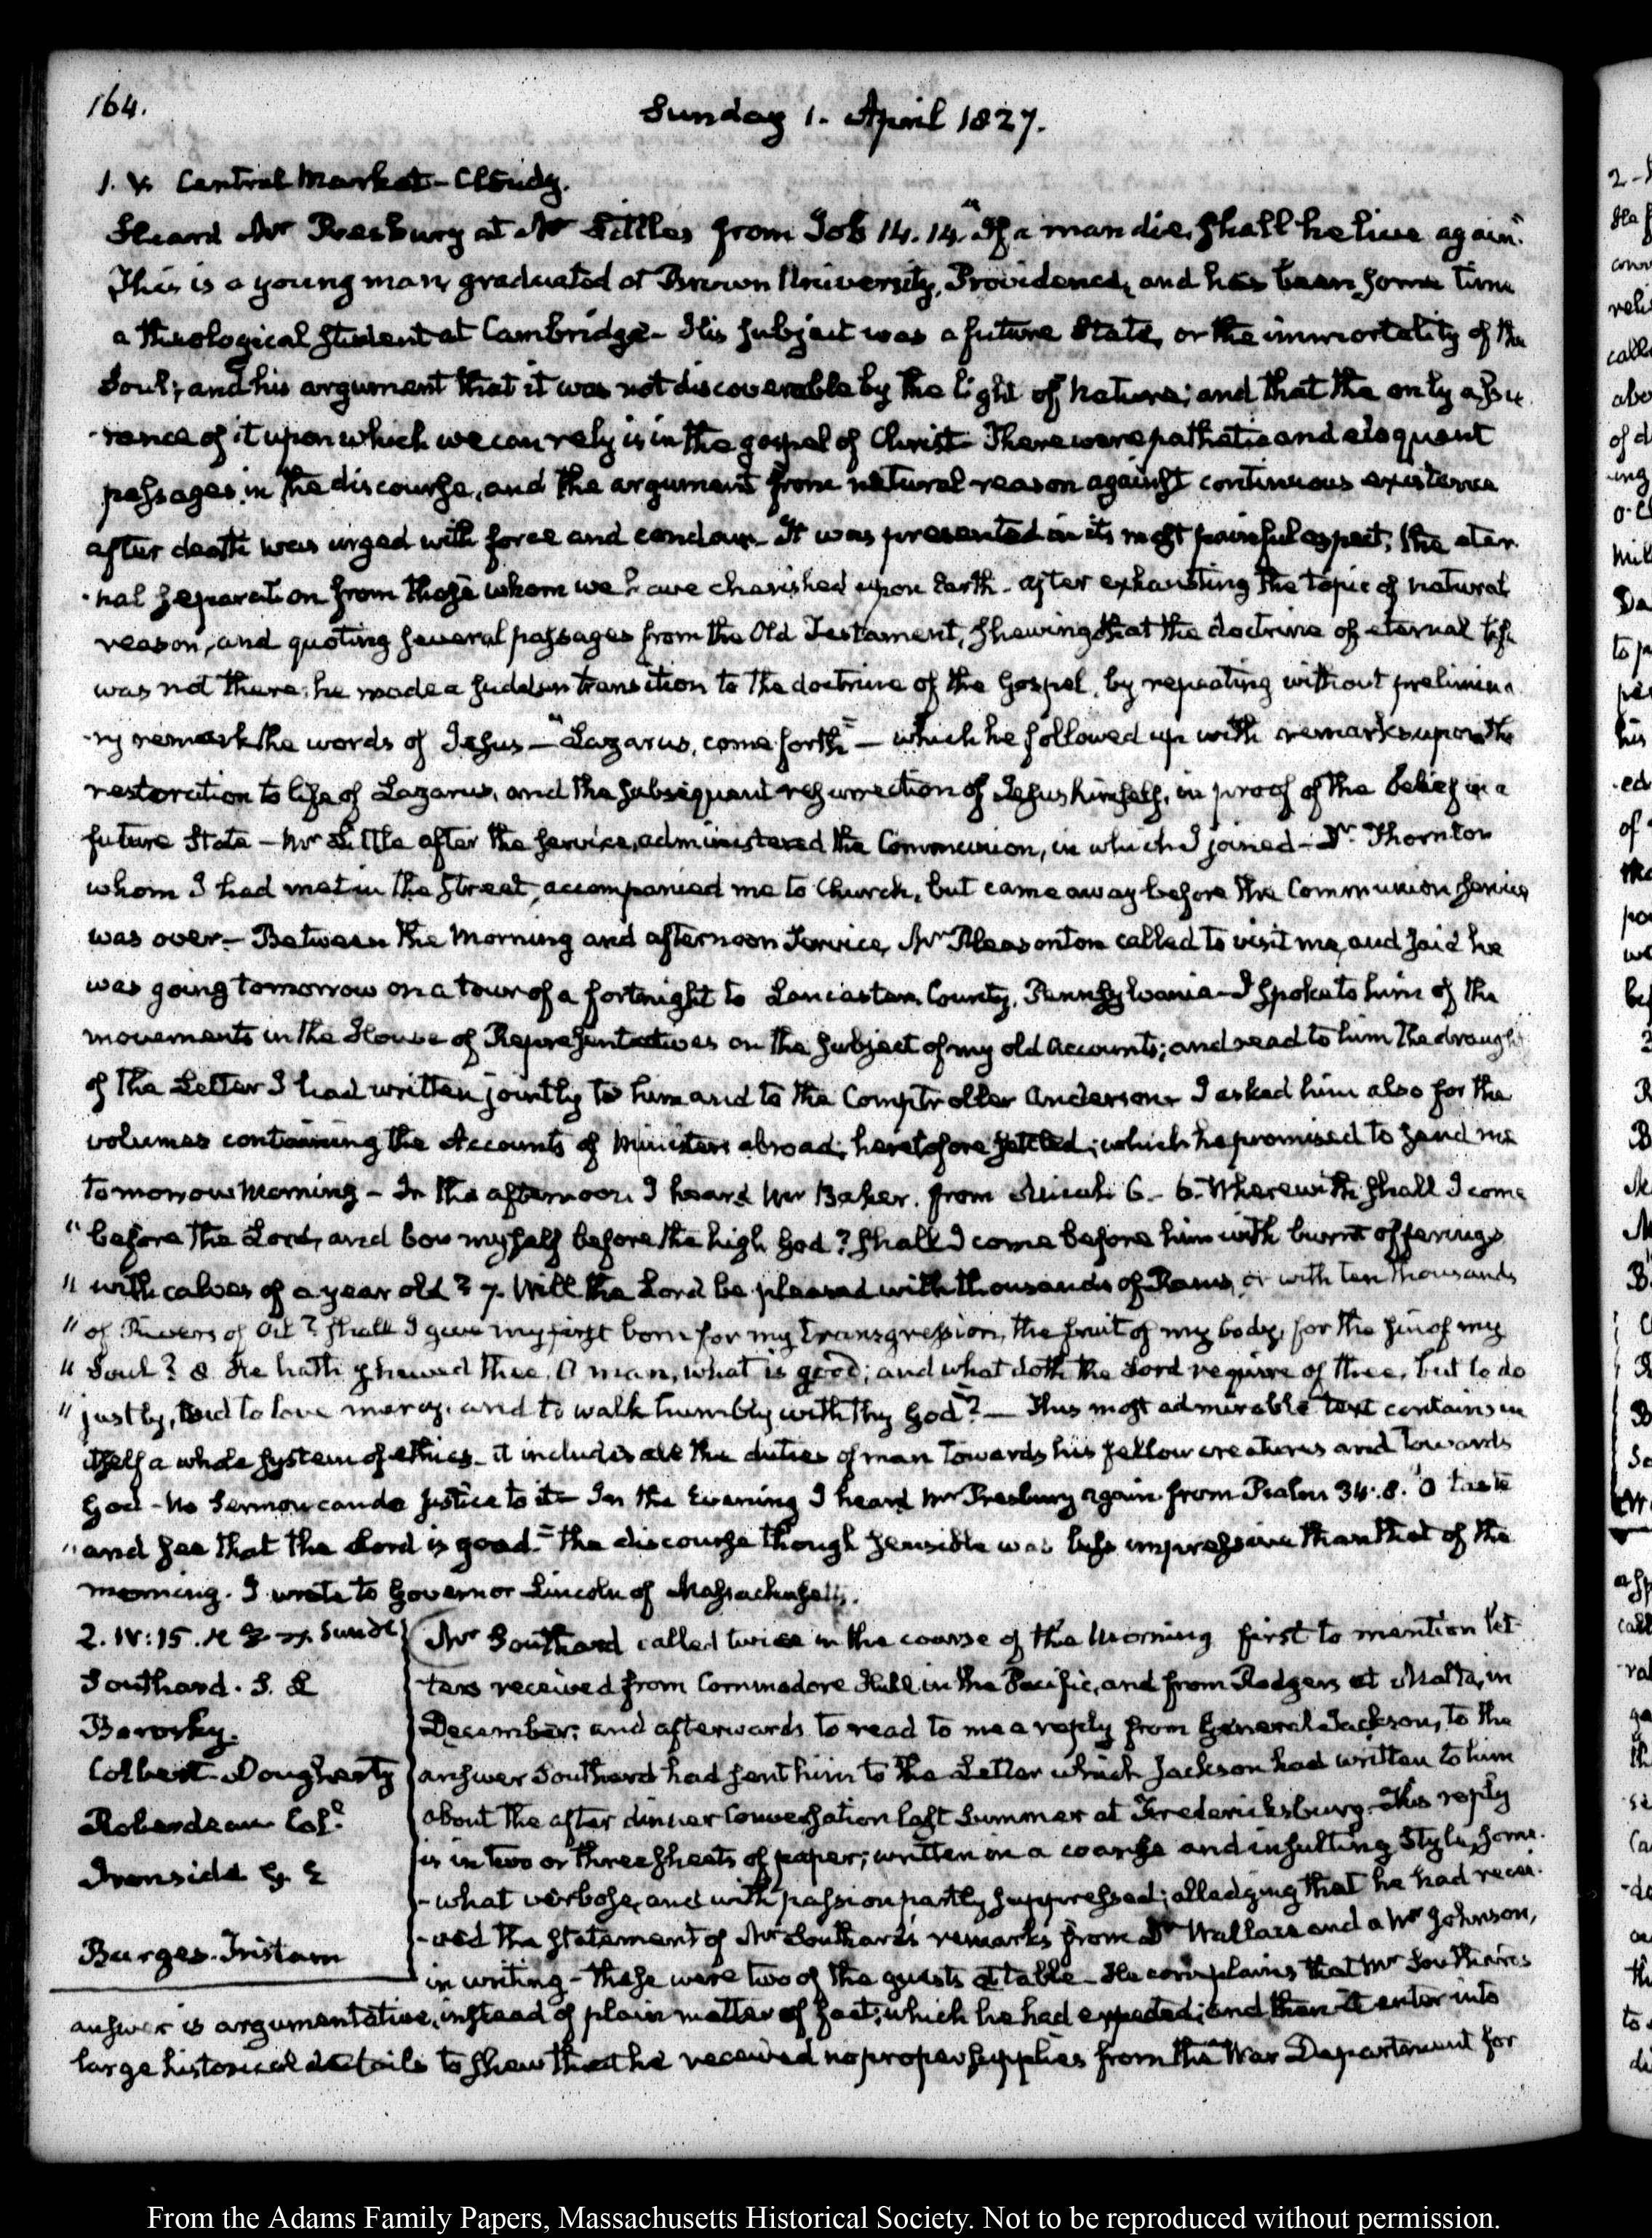 164.
Sunday 1. April 1827.
1. V. Central Market - Cloudy.
Heard Mr Presbury at Mr Little's from Job 14.14. "If a man die, shall he live again."
This is a young man, graduated at Brown University, Providence, and has been some time
a theological student at Cambridge - His subject was a future State, or the immortality of the
Soul; and his argument that it was not discoverable by the light of Nature; and that the only assu
-rance of it upon which we can rely is in the gospel of Christ - There were pathetic and eloquent
passages in the discourse, and the argument from natural reason against continuous existence
after death was urged with force and candour - It was presented in its most painful aspect, the eter
-nal separation from those whom we have cherished upon Earth - after exhausting the topic of natural
reason, and quoting several passages from the Old Testament, shewing that the doctrine of eternal life
was not there; he made a sudden transition to the doctrine of the Gospel, by repeating without prelimina
-ry remark the words of Jesus - "Lazarus, come forth" - which he followed up with remarks upon the
restoration to life of Lazarus, and the subsequent resurrection of Jesus himself, in proof of the belief in a
future State - Mr Little after the service, administered the Communion, in which I joined - Dr Thornton
whom I had met in the Street, accompanied me to Church, but came away before the Communion service
was over - Between the Morning and afternoon Service, Mr Pleasonton called to visit me, and said he
was going tomorrow on a tour of a fortnight to Lancaster County, Pennsylvania - I spoke to him of the
movements in the House of Representatives on the subject of my old Accounts; and read to him the draught
of the Letter I had written jointly to him and to the Comptroller Anderson - I asked him also for the
volumes containing the Accounts of Ministers abroad, heretofore settled; which he promised to send me
tomorrow Morning - In the afternoon I heard Mr Baker. from Micah 6. 6. "Wherewith shall I come
"before the Lord, and bow myself before the high God? Shall I come before him with burnt offerings
"with calves of a year old? 7. Will the Lord be pleased with thousands of Rams, or with ten thousands
"of Rivers of Oil? Shall I give my first born for my transgression, the fruit of my body, for the sin of my
"Soul? 8. He hath shewed thee, O man, what is good; and what doth the Lord require of thee, but to do
"justly, and to love mercy, and to walk humbly with thy God"? - This most admirable text contains in
itself a whole system of ethics - it includes all the duties of man towards his fellow creatures and towards
God - No Sermon can do justice to it - In the Evening I heard Mr Presbury again from Psalm 34.8. "O taste
"and see that the Lord is good." the discourse though sensible was less impressive than that of the
morning. I wrote to Governor Lincoln of Massachusetts.
2. IV:15.
Southard. S. L
Borosky.
Colbert. Dougherty
Roberdeau Col.
Ironside G. E
Burges. Tristam
Mr Southard called twice in the course of the Morning first to mention let
-ters received from Commodore Hull in the Pacific, and from Rodgers at Malta, in
December; and afterwards to read to me a reply from General Jackson, to the
answer Southard had sent him to the Letter which Jackson had written to him
about the after dinner Conversation last Summer at Fredericksburg. This reply
is in two or three sheets of paper; written in a coarse and insulting Style, some
-what verbose, and with passion partly suppressed; alledging that he had recei
-ved the statement of Mr Southard's remarks from a Dr Wallace and a Mr Johnson,
in writing - these were two of the guests at table - He complains that Mr Southard's
answer is argumentative, instead of plain matter of fact; which he had expected; and then enter into
large historical details to shew that he received no proper supplies from the War Department for
From the Adams Family Papers, Massachusetts Historical Society. Not to be reproduced without permission.